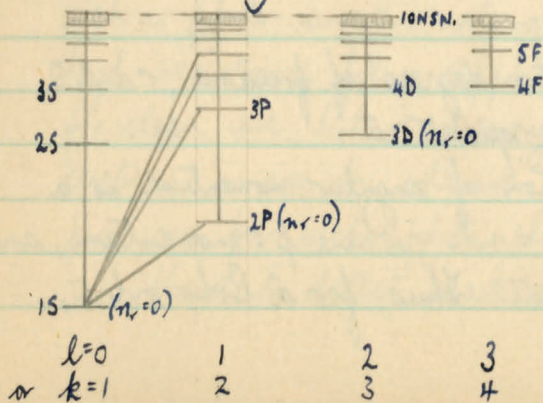 IONSN.
5F
3S
4D
4F
3P
2S
3D (nᵣ=0
2P (nᵣ=0)
1S (nᵣ=0)
l=0 1 2 3
or k=1 2 3 4